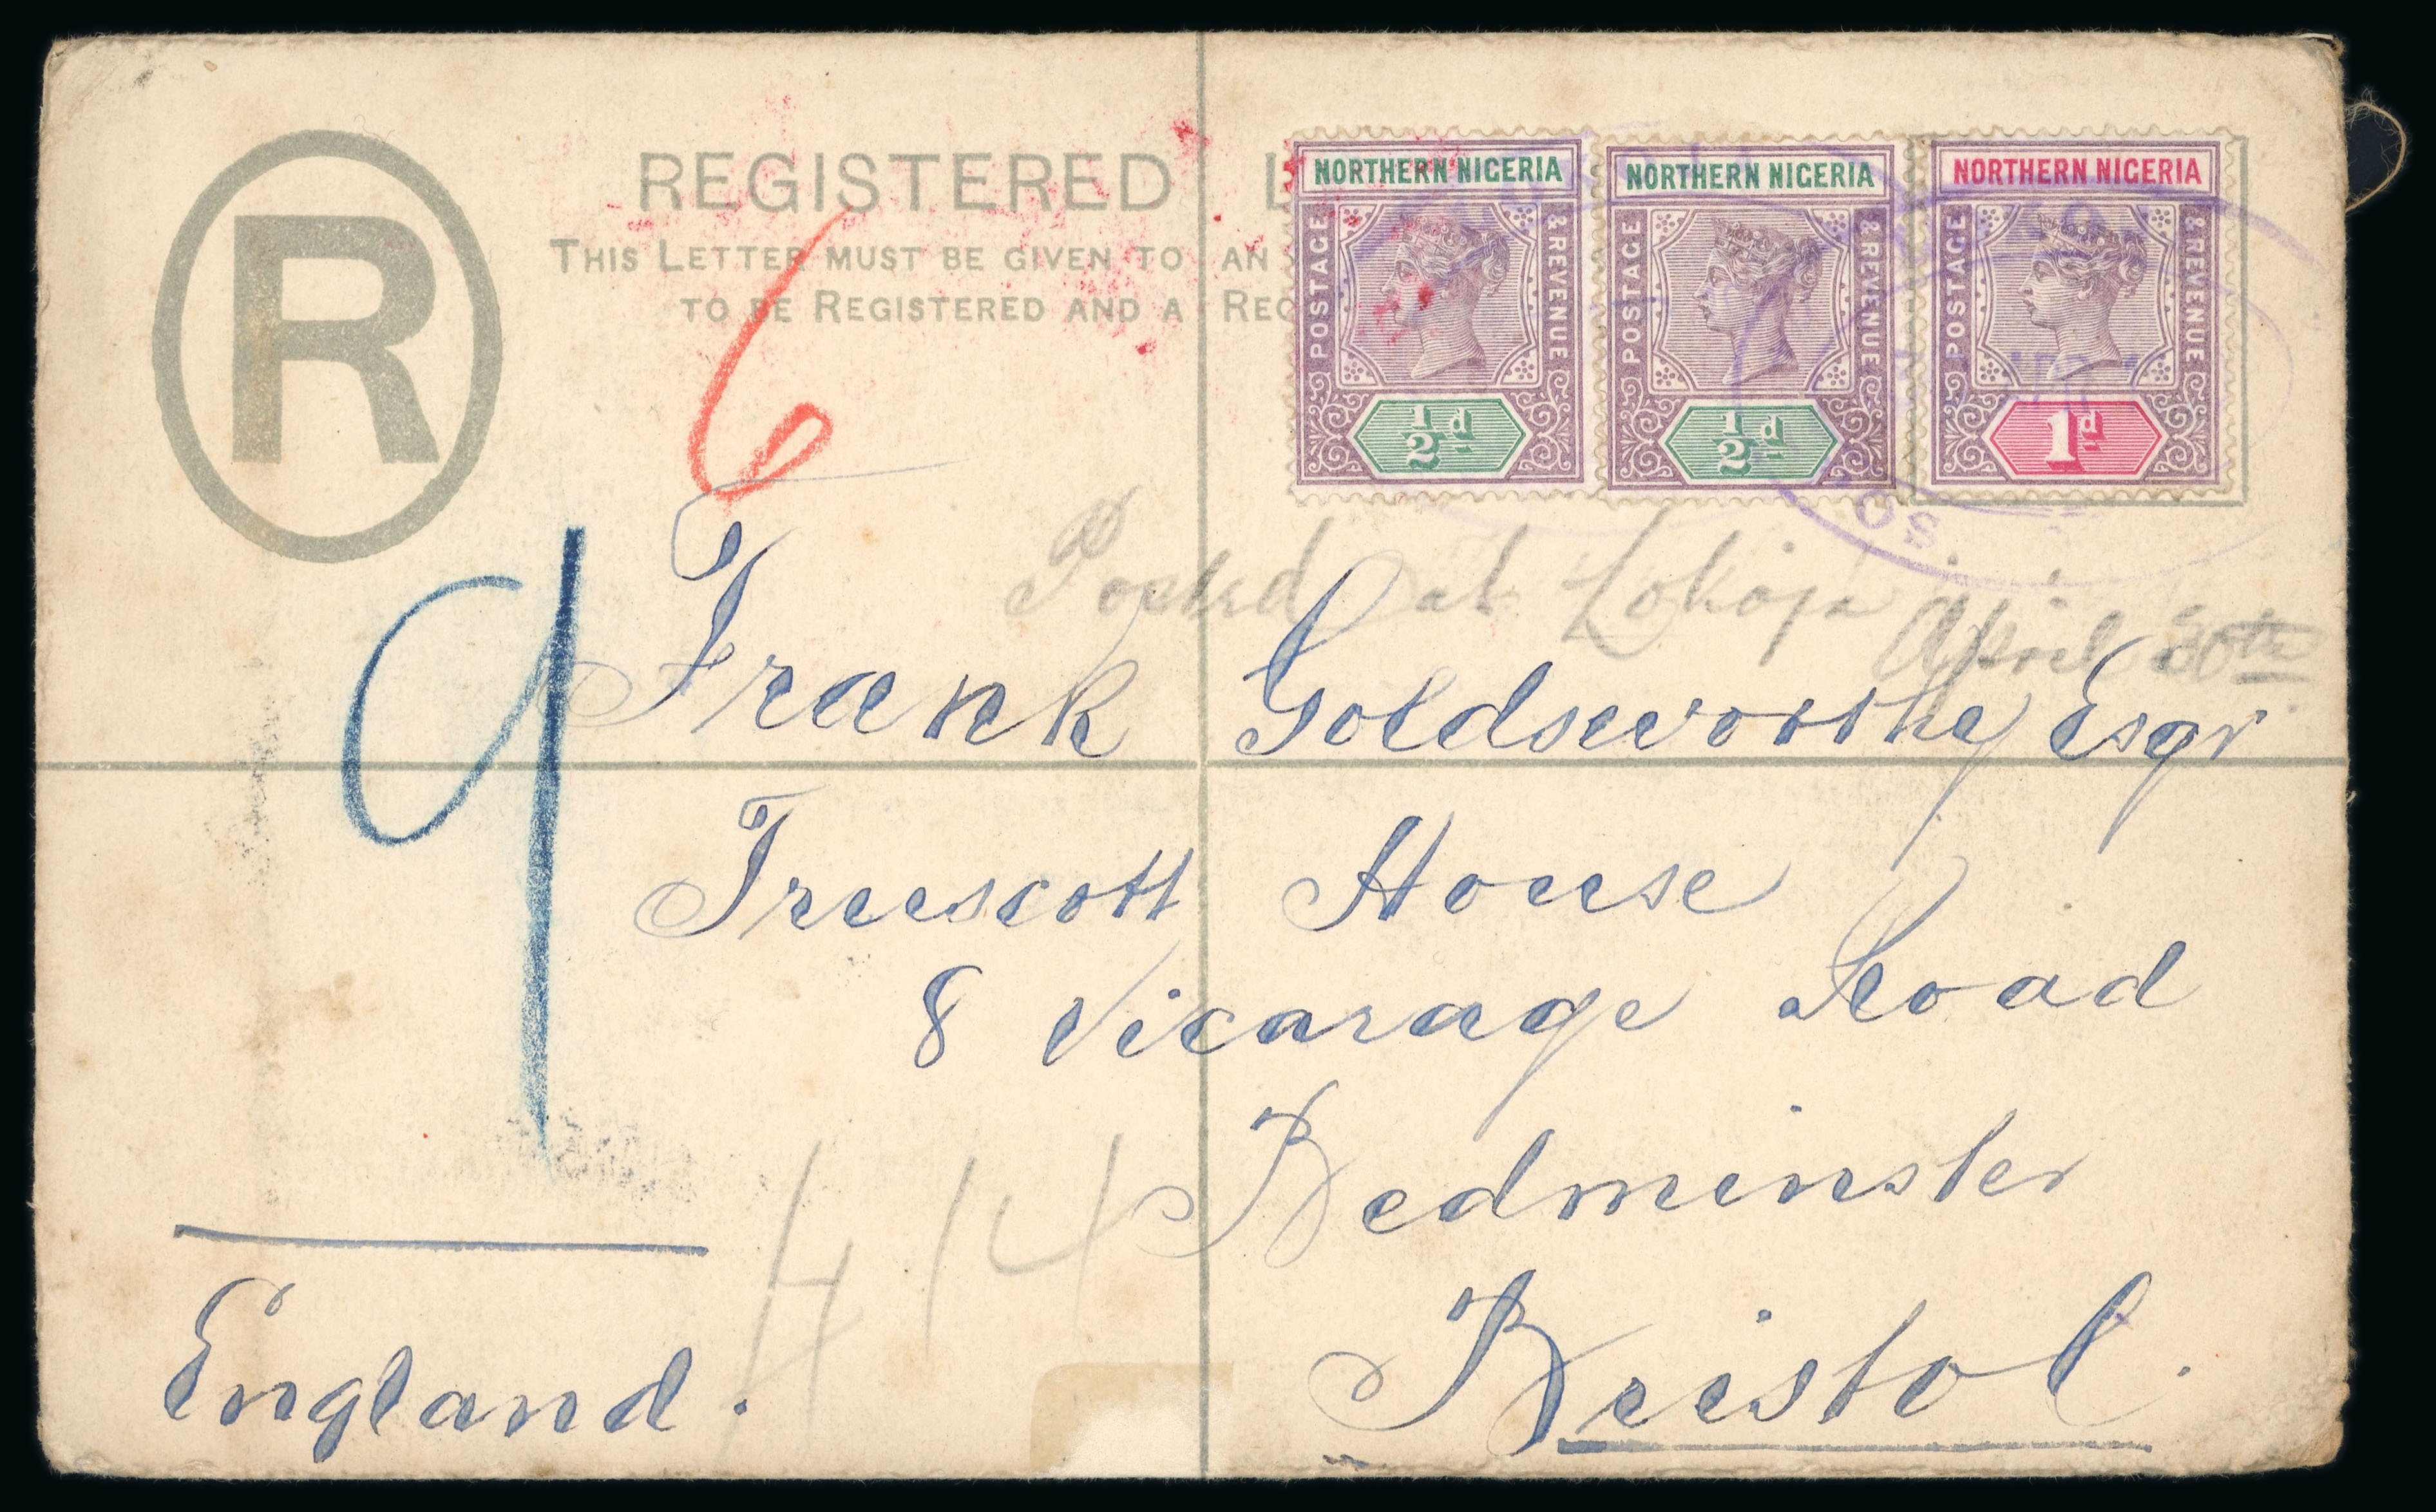 R
REGISTERED L
THIS LETTER MUST BE GIVEN TO AN
TO BE REGISTERED AND A REC
NORTHERN NIGERIA
POSTAGE & REVENUE
½d
NORTHERN NIGERIA
POSTAGE & REVENUE
½d
NORTHERN NIGERIA
POSTAGE & REVENUE
1d
6
9
Posted at Lokoja April 30th
Frank Goldsworthy Esqr
Truscott House
8 Vicarage Road
Bedminster
Bristol.
England.
414